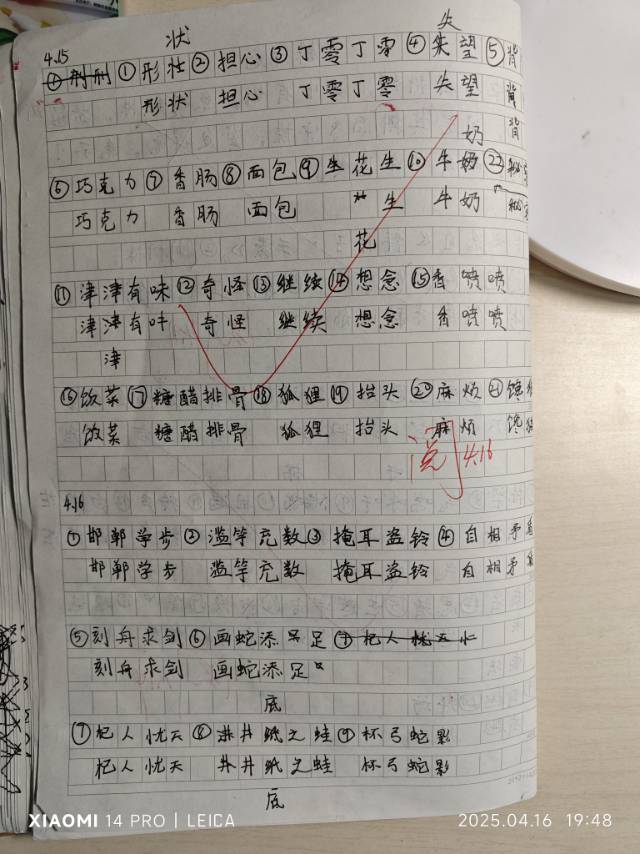 状 失
4.15
①形壮②担心③丁零丁零④失望⑤背
形状 担心 丁零丁零 失望 背
奶 背
⑥巧克力⑦香肠⑧面包⑨生花生⑩牛奶㉒
巧克力 香肠 面包 生 牛奶
花
⑪津津有味⑫奇怪⑬继续⑭想念⑮香喷喷
津津有味 奇怪 继续 想念 香喷喷
津
⑯饭菜⑰糖醋排骨⑱狐狸⑲抬头⑳麻烦㉑馋
饭菜 糖醋排骨 狐狸 抬头 麻烦 馋
阅 4.16
4.16
①邯郸学步②滥竽充数③掩耳盗铃④自相矛盾
邯郸学步 滥竽充数 掩耳盗铃 自相矛盾
⑤刻舟求剑⑥画蛇添足足⑦杞人忧
刻舟求剑 画蛇添足
底
⑦杞人忧天⑧井 之蛙⑨杯弓蛇影
杞人忧天 井 之蛙 杯弓蛇影
底
XIAOMI 14 PRO | LEICA 2025.04.16 19:48